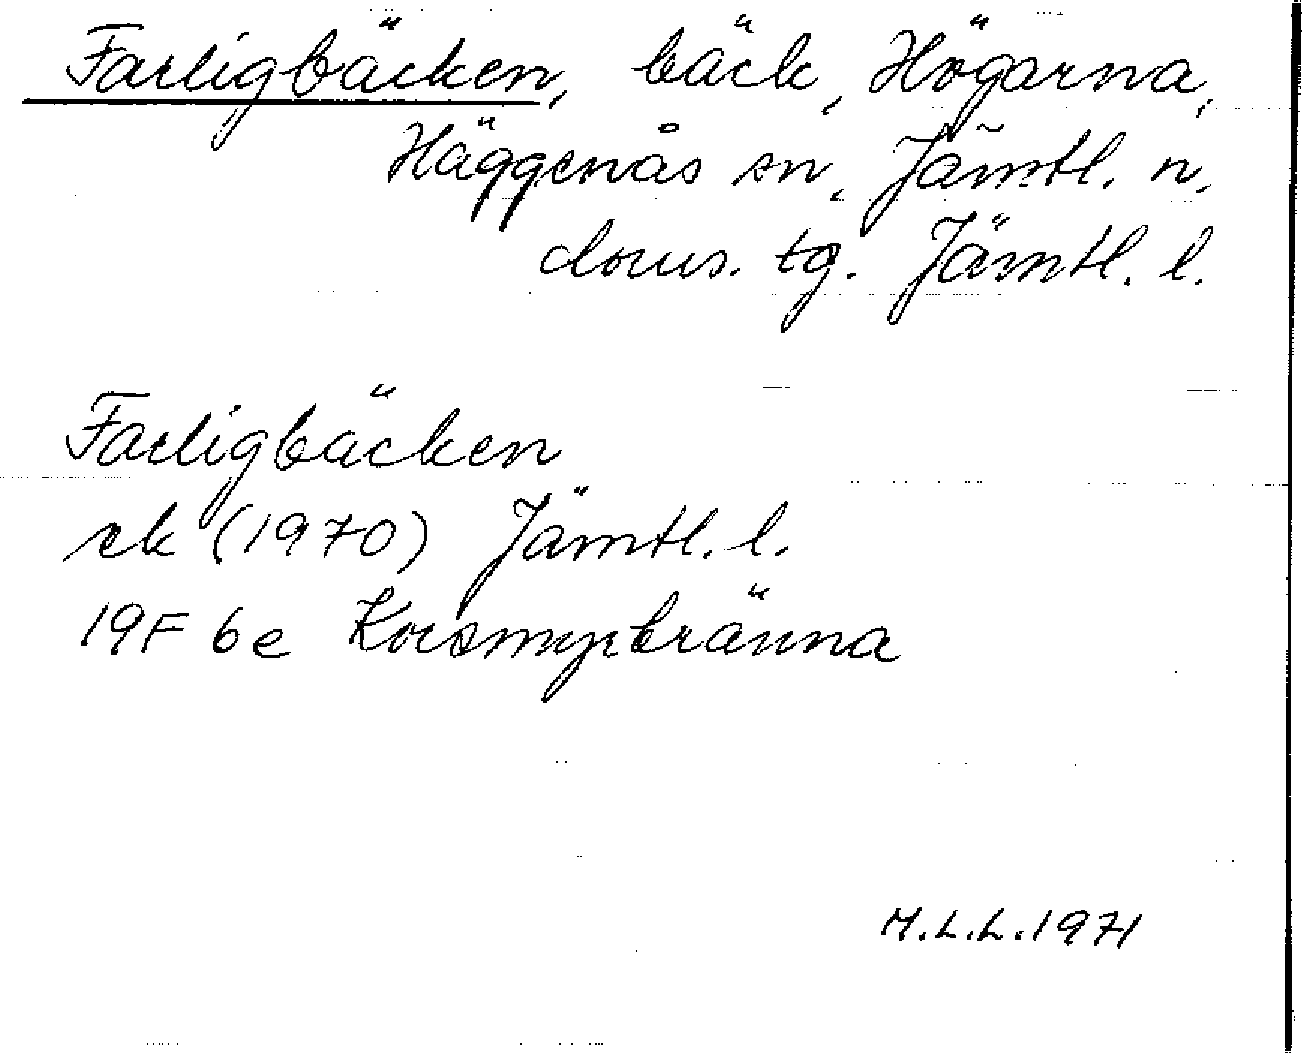 Farligbäcken, bäck, Högarna,
Häggenås sn, Jämtl. n.
doms. tg. Jämtl. l.
Farligbäcken
rk (1970) Jämtl. l.
19F 6e Korsmyrbränna
M.L.L. 1971